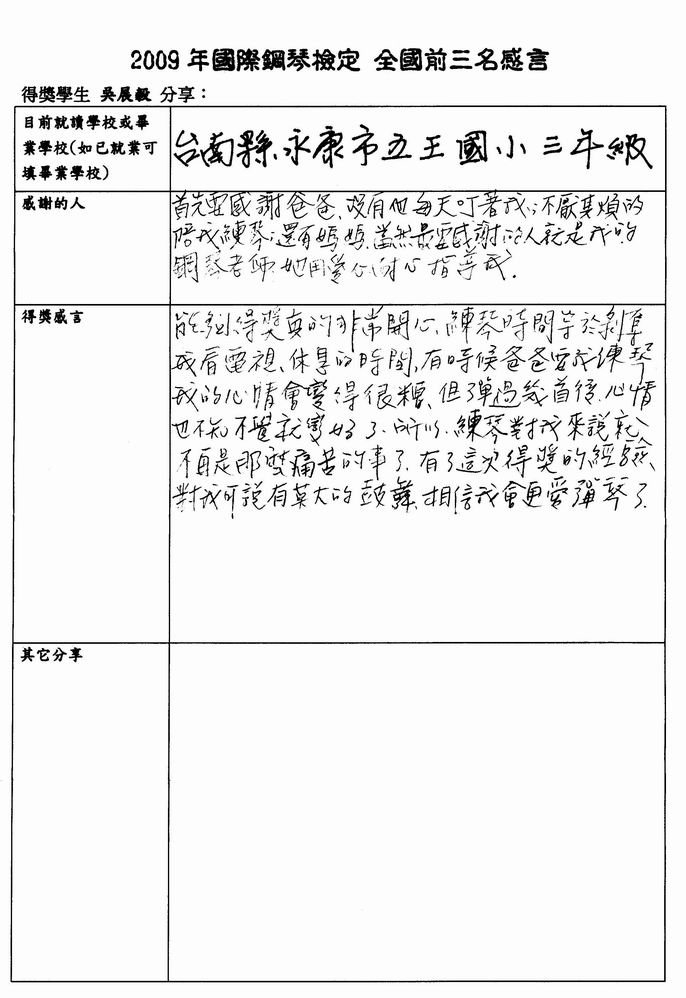 2009 年國際鋼琴檢定 全國前三名感言
得獎學生 吳展毅 分享：
目前就讀學校或畢
業學校(如已就業可
填畢業學校)
台南縣永康市五王國小三年級
感謝的人
首先要感謝爸爸、沒有他每天叮著我、不厭其煩的
陪我練琴；還有媽媽、當然最要感謝的人就是我的
鋼琴老師、她用愛心耐心指導我.
得獎感言
能夠得獎真的非常開心、練琴時間等於剝奪
我看電視、休息的時間，有時候爸爸要我練琴
我的心情會變得很糟、但彈過幾首後、心情
也不知不覺就變好了、所以、練琴對我來說就
不再是那麼痛苦的事了、有了這次得獎的經驗、
對我可說有莫大的鼓舞、相信我會更愛彈琴了.
其它分享